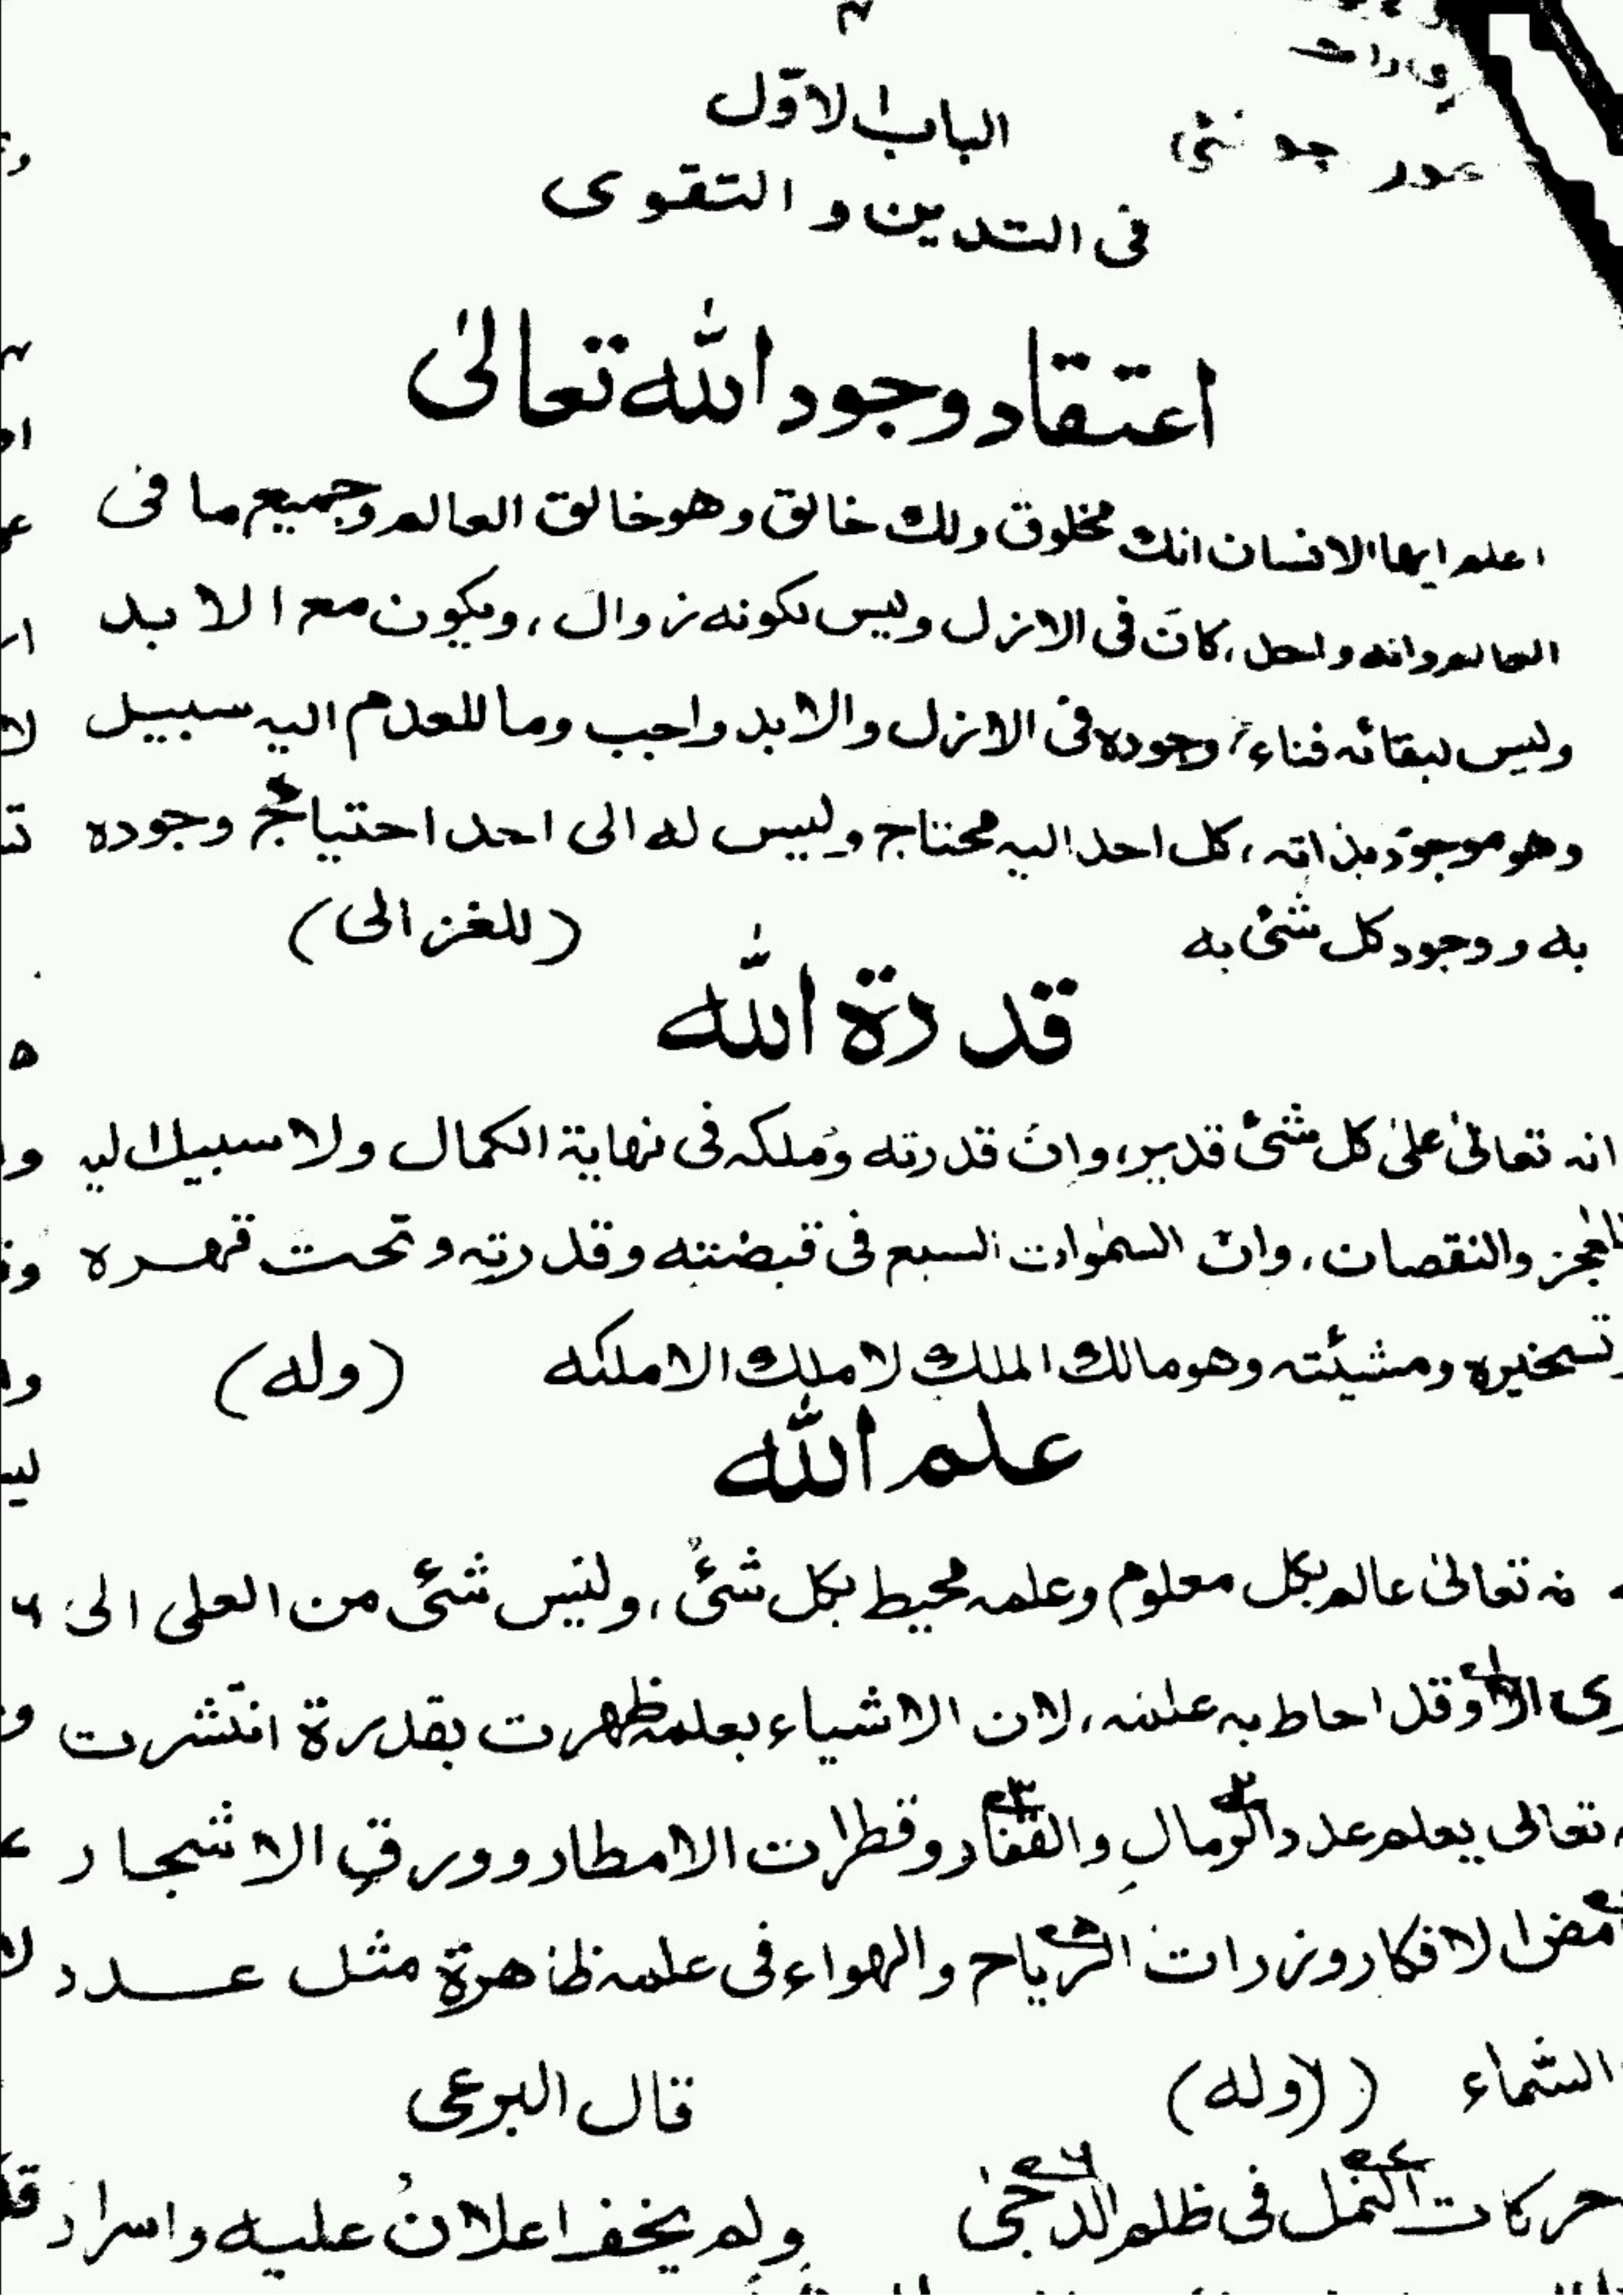 الباب الاوّل
فى التدين و التقوى
اعتقاد وجود الله تعالىٰ
اعلم ايها الانسان انك مخلوق ولك خالق وهو خالق العالم وجميع ما فى
العالم وانه واحد، كانَ فى الازل وليس لكونه زوال، ويكون مع الابد
وليس لبقائه فناء، وجوده فى الازل والابد واجب وما للعدم اليه سبيل
وهو موجود بذاته، كل احد اليه محتاج وليس له الى احد احتياج وجوده
به و وجود كل شئ به (للغزالى)
قدرة الله
انه تعالىٰ علىٰ كل شئ قدير، وانَ قدرته وُملكه فى نهاية الكمال ولا سبيل اليه
للعجز والنقصان، وان السمٰوات السبع فى قبضته وقدرته وتحت قهره
وتسخيره ومشيئته وهو مالك الملك لا ملك الا ملكه (وله)
علم الله
نه تعالىٰ عالم بكل معلوم وعلمه محيط بكل شئ، وليس شئ من العلى الى
رى الا وقد احاط به علمه، لان الاشياء بعلمه ظهرت بقدرة انتشرت
تعالى يعلم عدد الرمال والقفار وقطرات الامطار وورق الاشجار
مض الافكار وزرات الرياح والهواء فى علمه ظاهرة مثل عدد
السّماء (وله) قال البرعى
حركات النمل فى ظلم الدجىٰ ولم يخف اعلانُ عليه واسرار